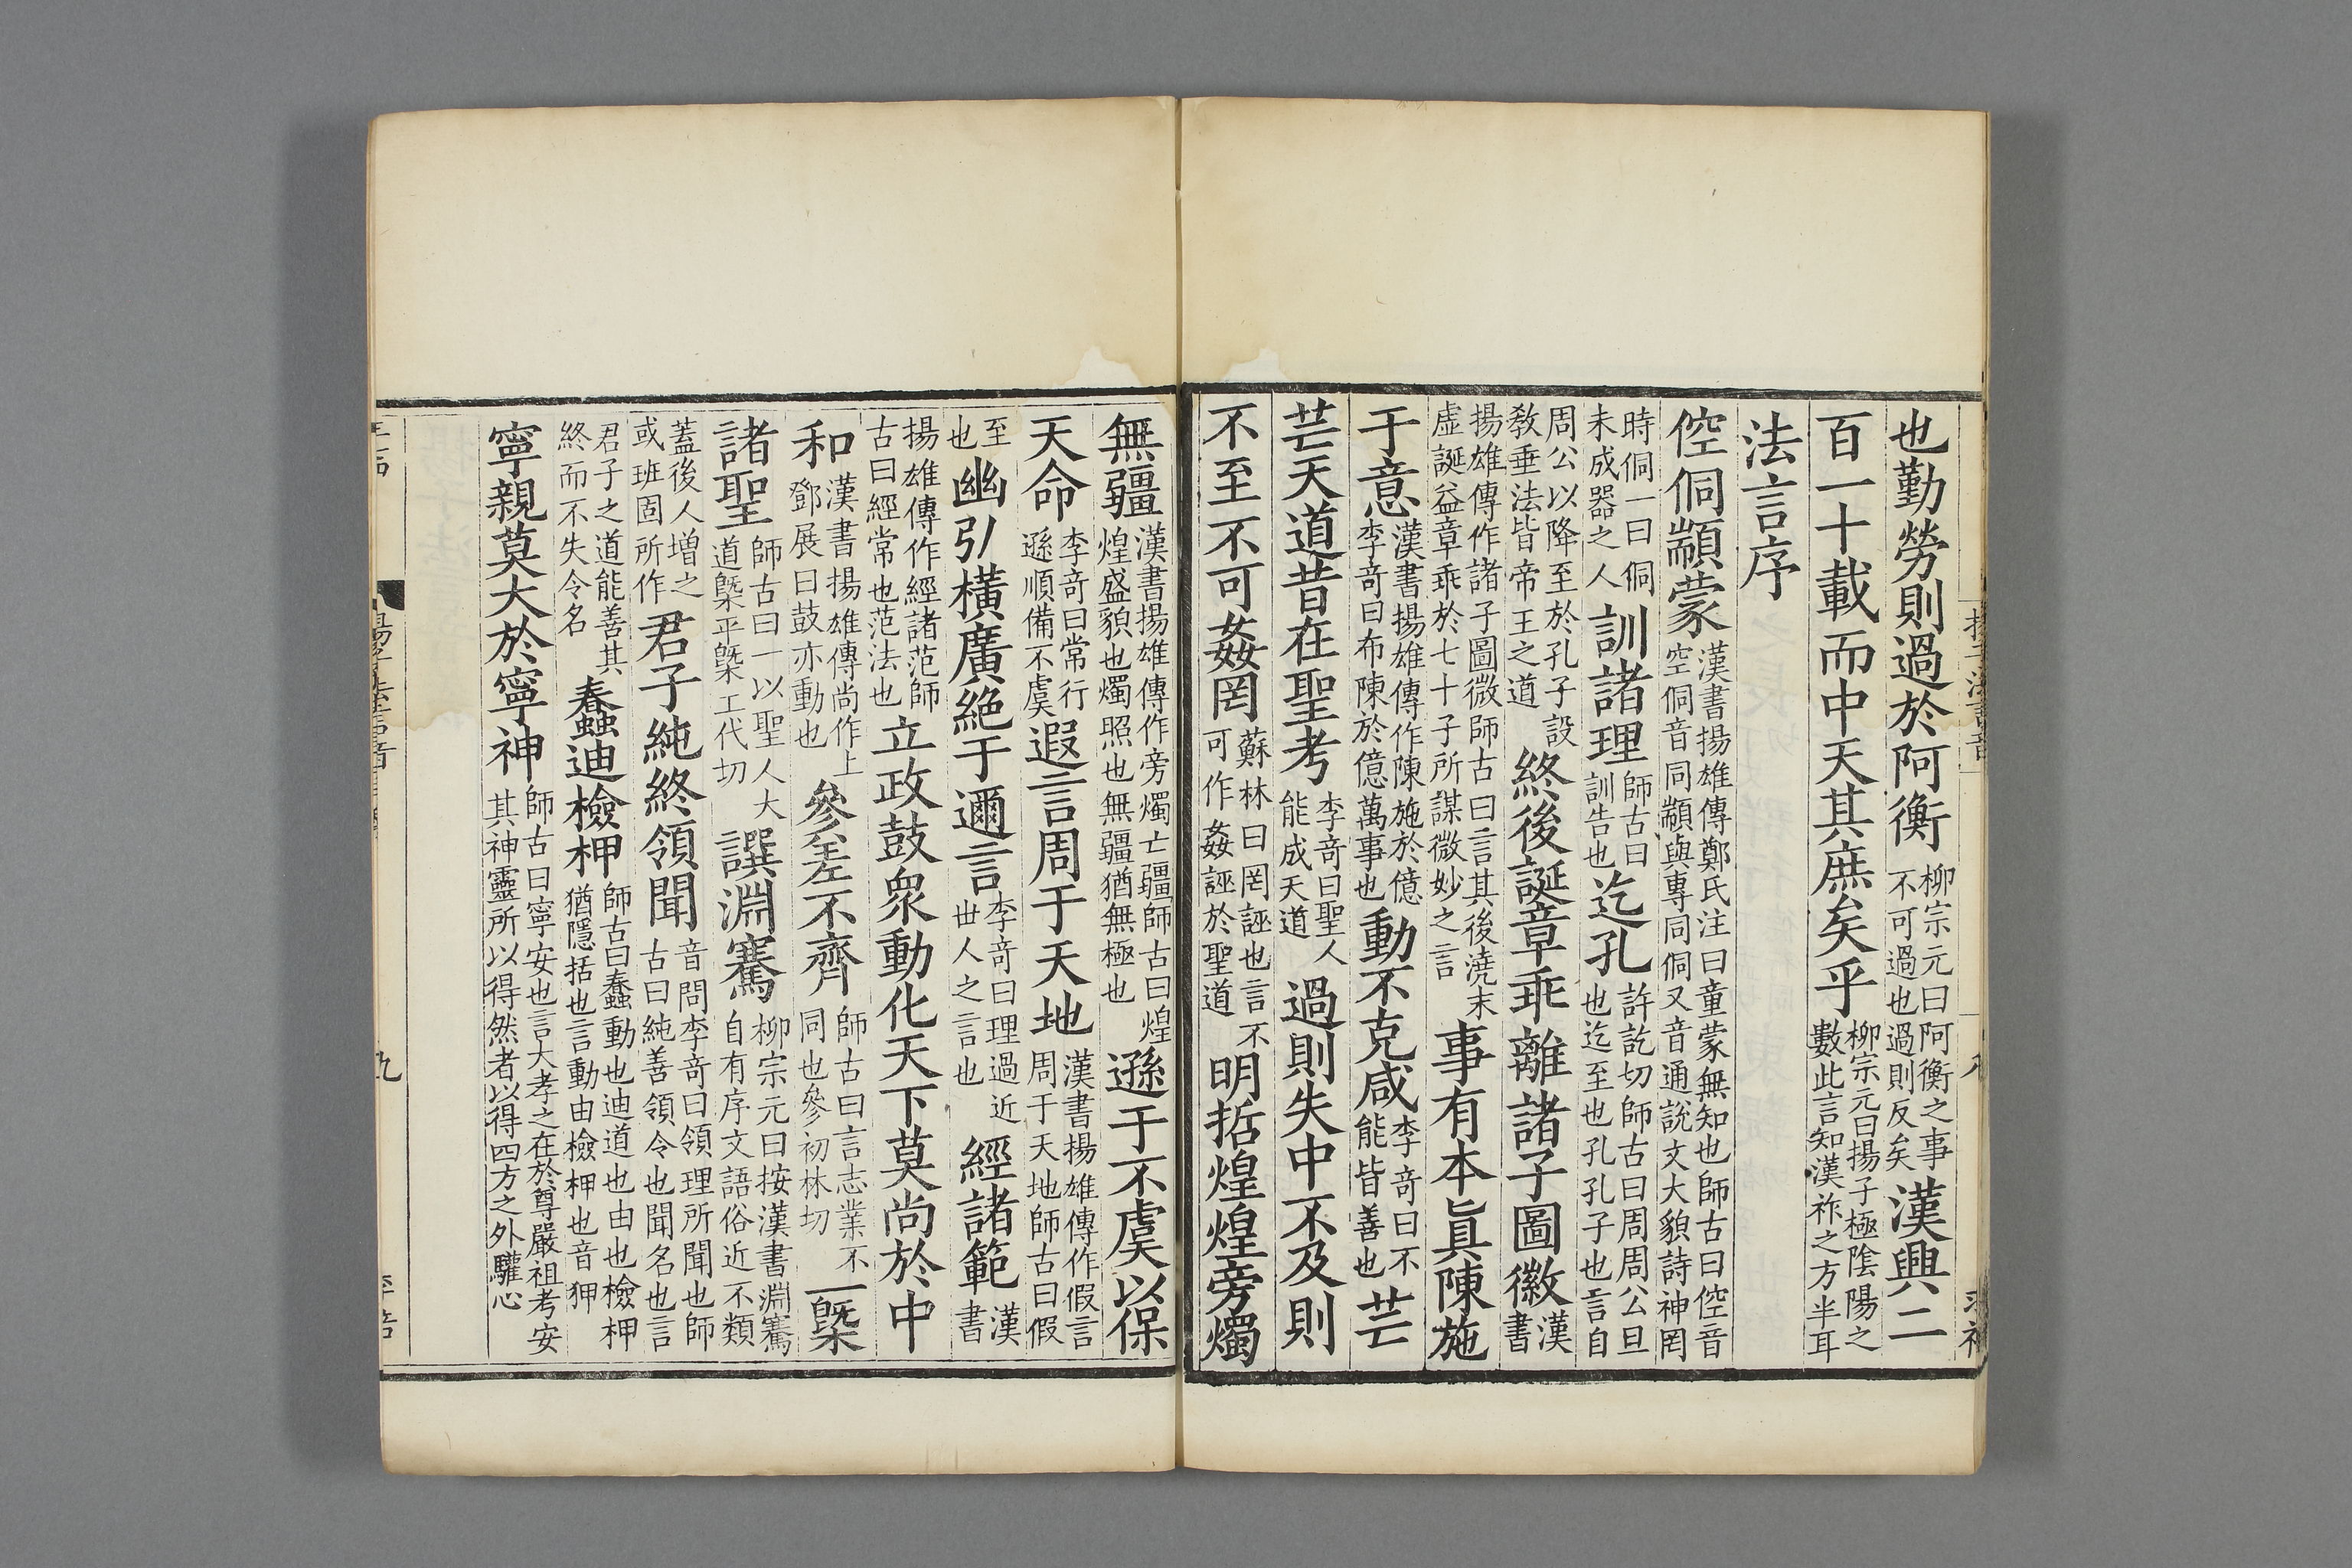 也勤勞則過於阿衡柳宗元曰阿衡之事不可過也過則反矣漢興二
百一十載而中天其庶矣乎柳宗元曰揚子極陰陽之數此言知漢祚之方半耳
法言序
倥侗顓蒙漢書揚雄傳鄭氏注曰童蒙無知也師古曰倥音空侗音同顓與專同侗又音通說文大貌詩神罔
時侗一曰侗未成器之人訓諸理師古曰訓告也迄孔許訖切師古曰周周公旦也迄至也孔孔子也言自
周公以降至於孔子設教垂法皆帝王之道終後誕章乖離諸子圖徽漢書
揚雄傳作諸子圖微師古曰言其後澆末虛誕益章乖於七十子所謀微妙之言事有本眞陳施
于意漢書揚雄傳作陳施於億李奇曰布陳於億萬事也動不克咸李奇曰不能皆善也芒
芒天道昔在聖考李奇曰聖人能成天道過則失中不及則
不至不可姦罔蘇林曰罔誣也言不可作姦誣於聖道明哲煌煌旁燭
無疆漢書揚雄傳作旁燭亡疆師古曰煌煌盛貌也燭照也無疆猶無極也遜于不虞以保
天命李奇曰常行遜順備不虞遐言周于天地漢書揚雄傳作假言周于天地師古曰假
至也幽引橫廣絶于邇言李奇曰理過近世人之言也經諸範漢書
揚雄傳作經諸范師古曰經常也范法也立政鼓衆動化天下莫尚於中
和漢書揚雄傳尚作上鄧展曰鼓亦動也參差不齊師古曰言志業不同也參初林切一槩
諸聖師古曰一以聖人大道槩平槩工代切譔淵騫柳宗元曰按漢書淵騫自有序文語俗近不類
蓋後人增之或班固所作君子純終領聞音問李奇曰領理所聞也師古曰純善領令也聞名也言
君子之道能善其終而不失令名蠢迪檢柙師古曰蠢動也迪道也由也檢柙猶隱括也言動由檢柙也音狎
寧親莫大於寧神師古曰寧安也言大孝之在於尊嚴祖考安其神靈所以得然者以得四方之外驩心
九